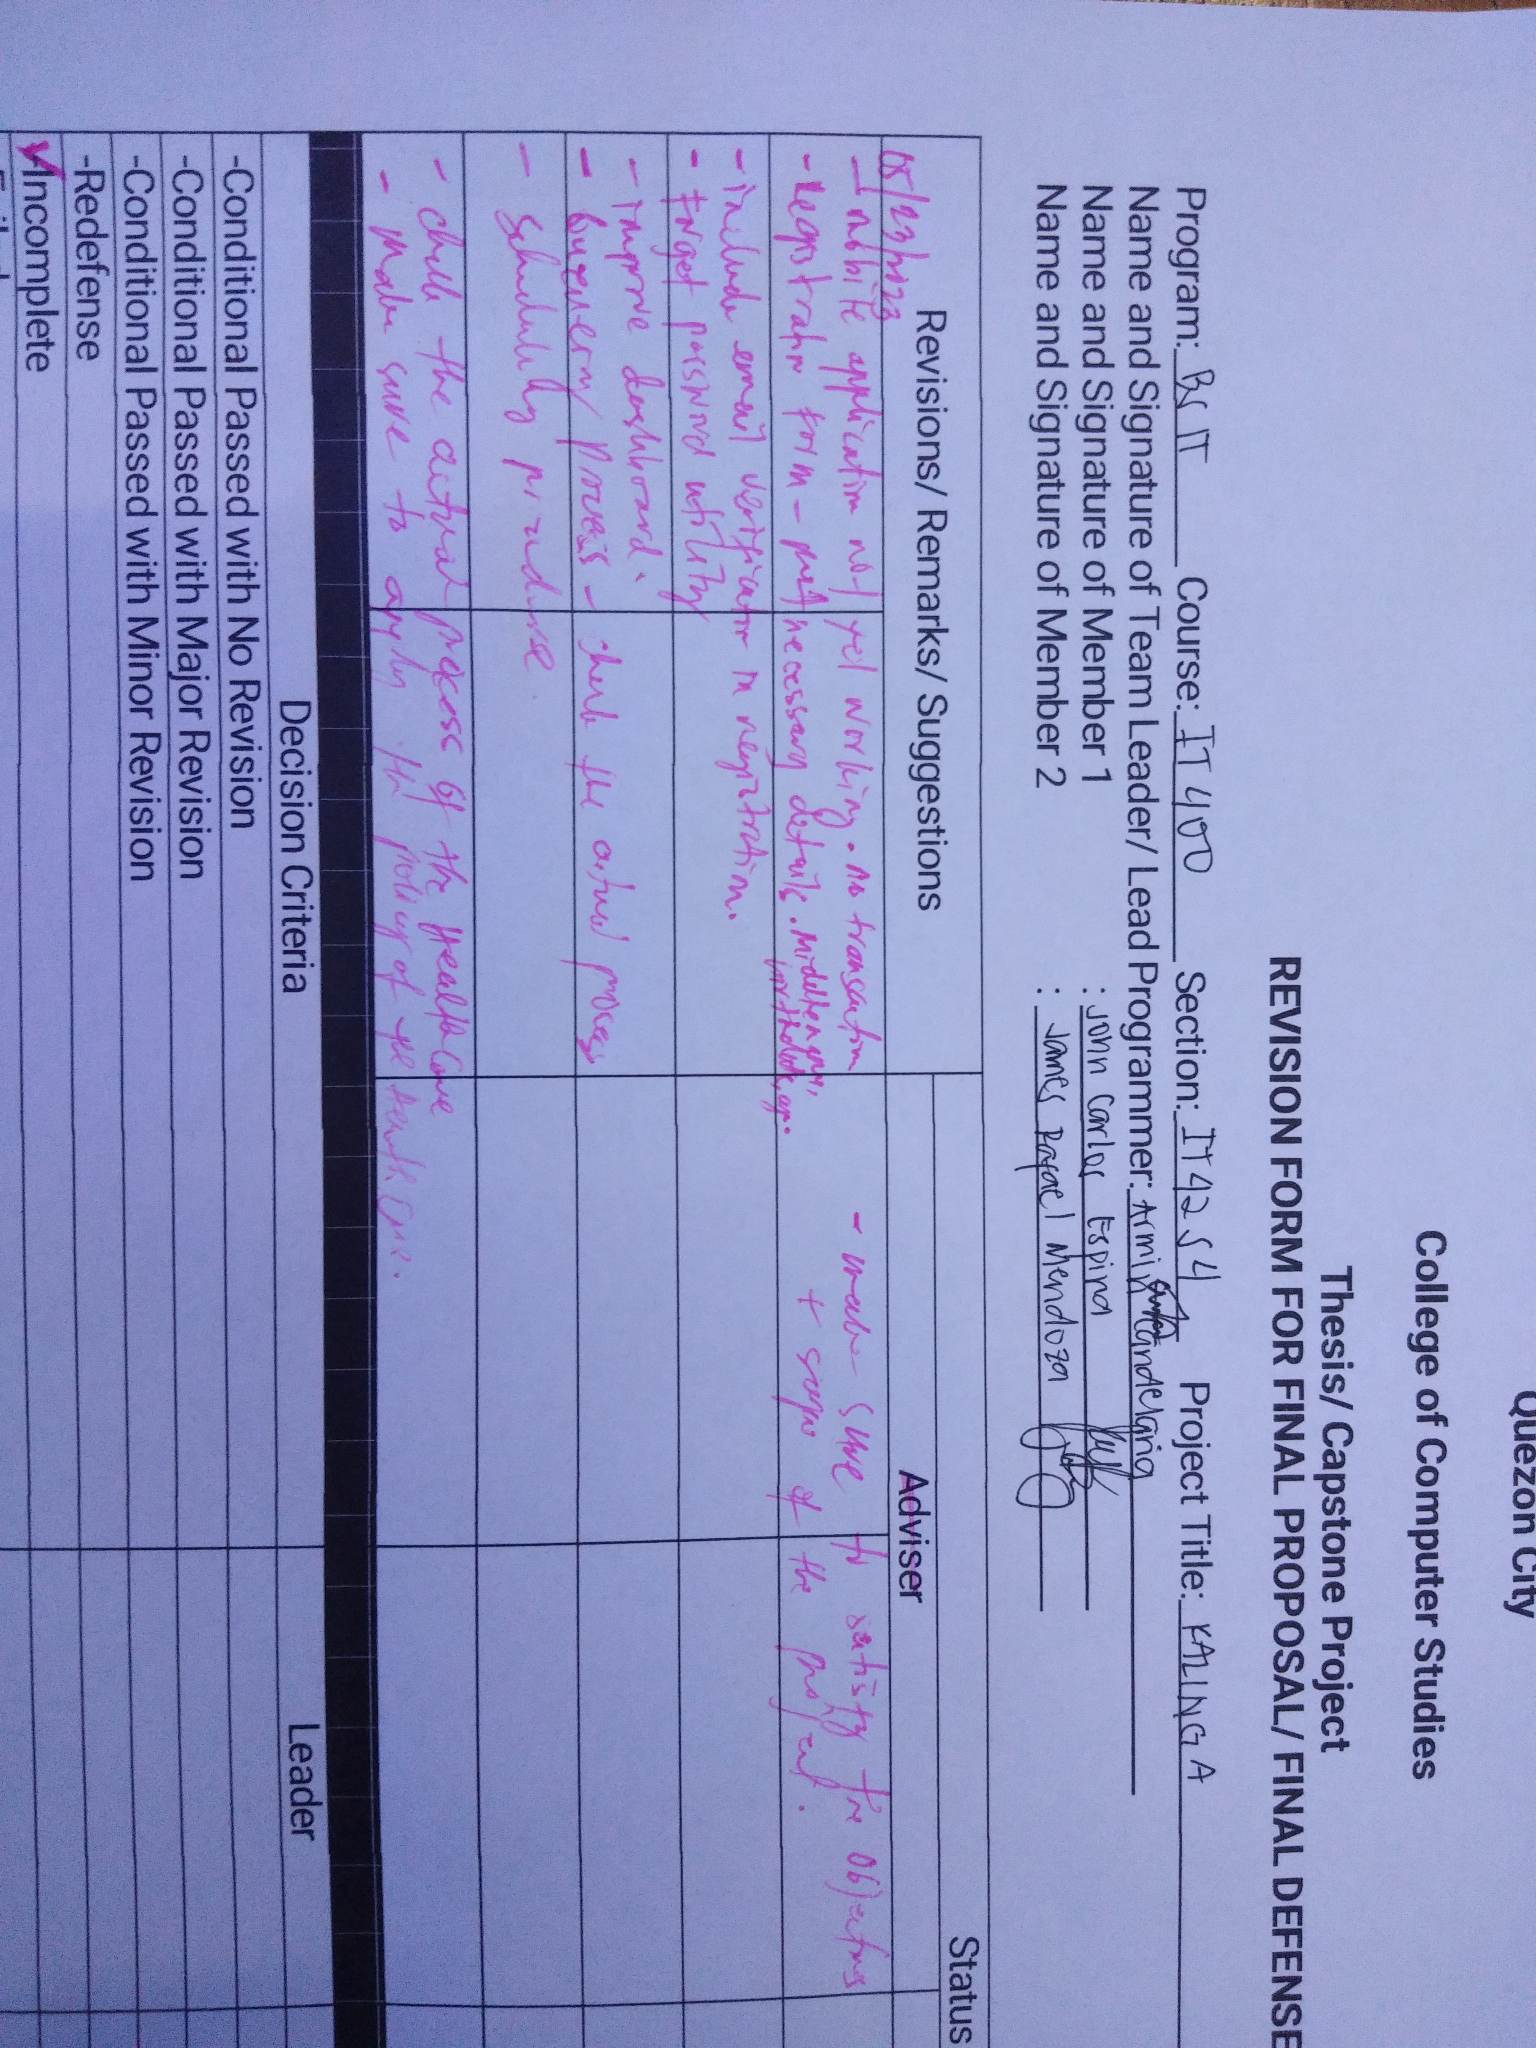 Quezon City
College of Computer Studies
Thesis/ Capstone Project
REVISION FORM FOR FINAL PROPOSAL/ FINAL DEFENSE
Program: BSIT Course: IT400 Section: IT42S4 Project Title: KALINGA
Name and Signature of Team Leader/ Lead Programmer: Armin Candelaria
Name and Signature of Member 1 : John Carlos Espina
Name and Signature of Member 2 : James Rafael Mendoza
Status
Revisions/ Remarks/ Suggestions
Adviser
05/23/2023
- mobile application not yet working. no transaction
- Registration form - put necessary details. Middlename, birthdate, age.
- make sure to satisfy the Objectives
+ scope of the project.
- include email verification in registration.
- Forget password utility
- improve dashboard.
- process - check the actual process
- Scheduling procedure
- check the actual process of the HealthCare
- Make sure to apply the policy of the Health Care.
Decision Criteria
Leader
-Conditional Passed with No Revision
-Conditional Passed with Major Revision
-Conditional Passed with Minor Revision
-Redefense
-Incomplete